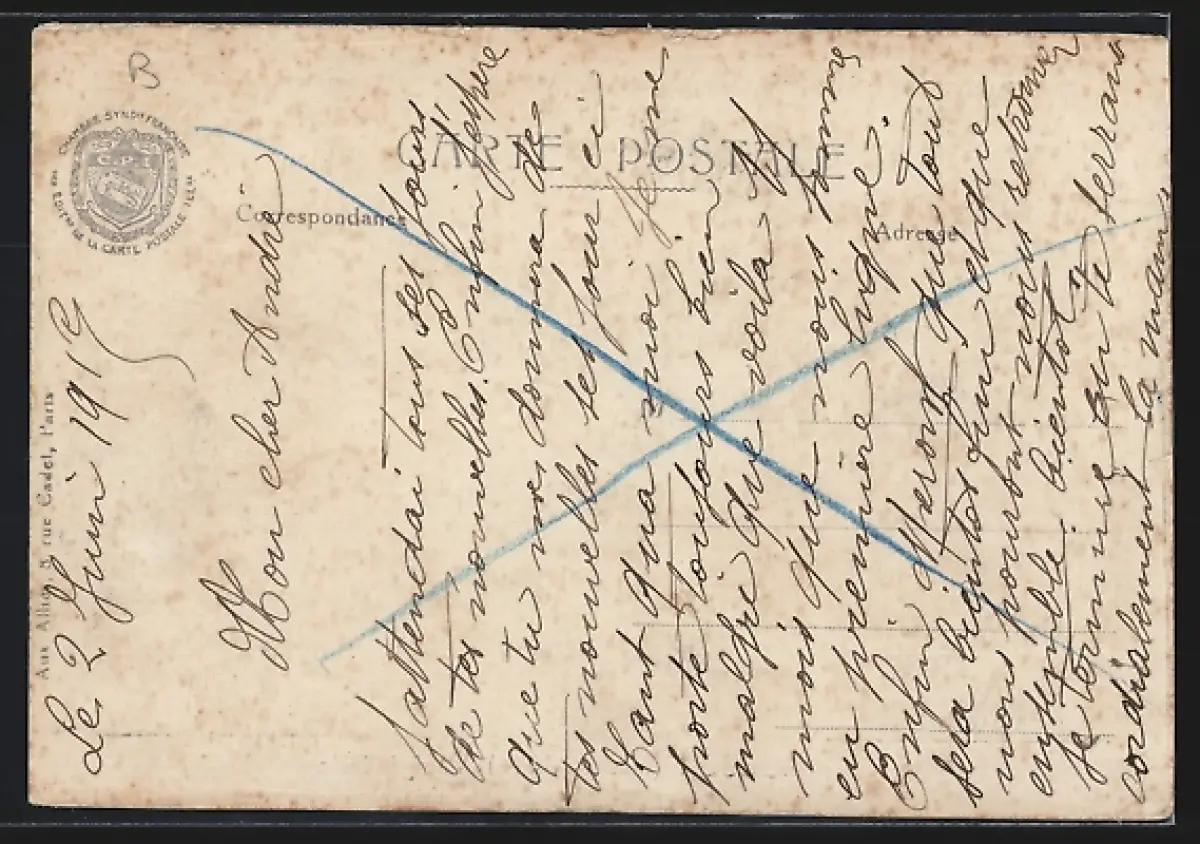 B
CHAMBRE SYND. FRANÇAISE
C.P.I.
DES EDIT. DE LA CARTE POSTALE ILL.
CARTE POSTALE
Correspondance
Adresse
Aux Alliés, 3 rue Cadet, Paris
Le 2 Juin 1919
Mon cher André
J'attendai tous ses jours
de tes nouvelles. Enfin j'espère
que tu nous donnera de
tes nouvelles ses jours ci
Tant qua moi je me
porte toujours bien
malgré que voila 7
mois que nous somme
en première ligne.
Enfin que tout
sera bientot fini et que
nous pourront nous retrouvez
ensemble bientot.
Je termine en te serrant
cordialement la main